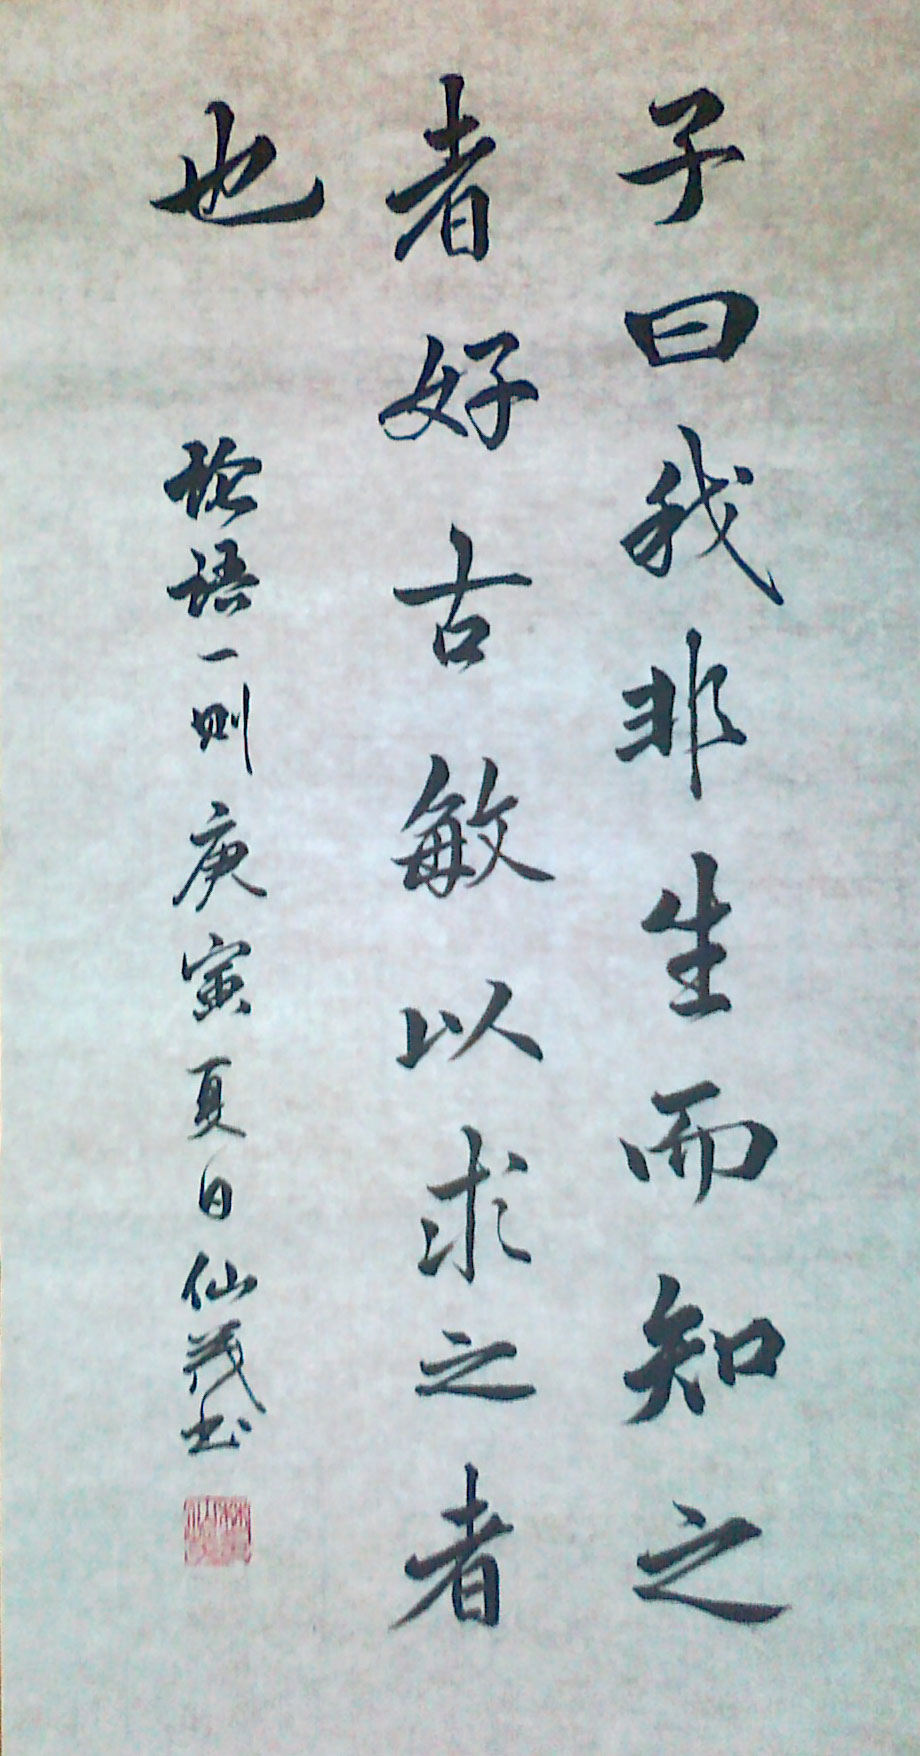 子曰我非生而知之
者好古敏以求之者
也
论语一则庚寅夏日仙茂书